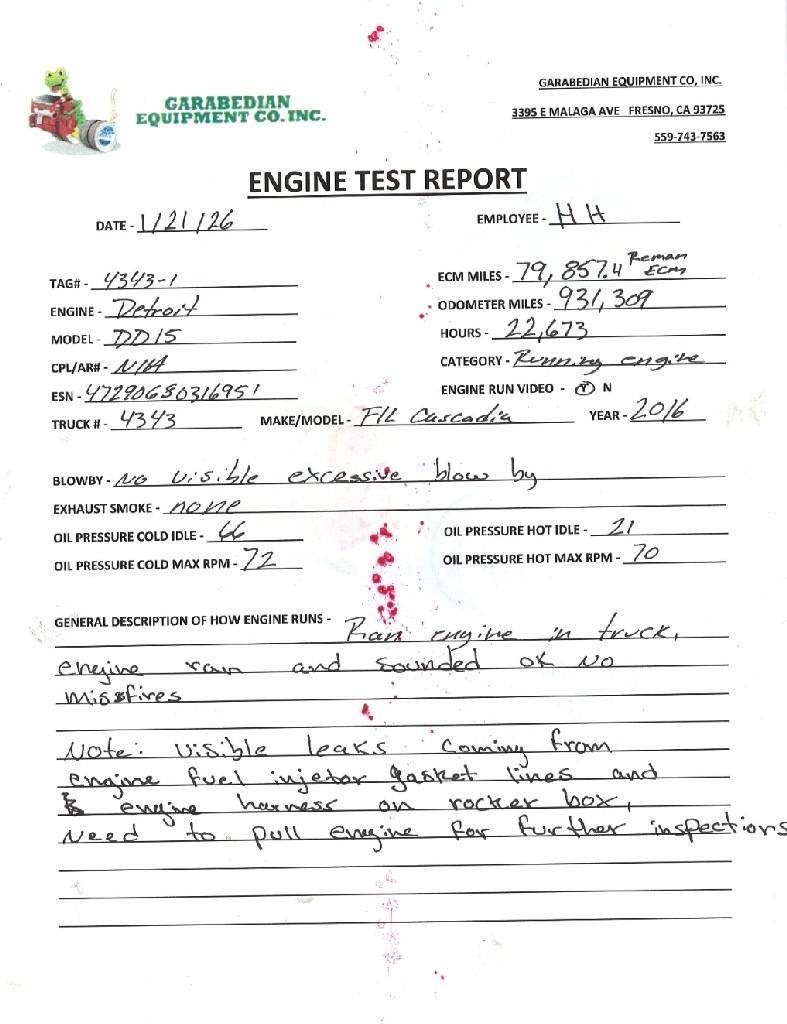 GARABEDIAN
EQUIPMENT CO. INC.
GARABEDIAN EQUIPMENT CO, INC.
3395 E MALAGA AVE FRESNO, CA 93725
559-743-7563
ENGINE TEST REPORT
DATE - 1/21/26 EMPLOYEE - HH
TAG# - 4343-1 ECM MILES - 79,857.4 Reman ECM
ENGINE - Detroit ODOMETER MILES - 931,309
MODEL - DD15 HOURS - 22,673
CPL/AR# - N/A CATEGORY - Running engine
ESN - 472906S0316951 ENGINE RUN VIDEO - Y N
TRUCK # - 4343 MAKE/MODEL - F/L Cascadia YEAR - 2016
BLOWBY - No visible excessive blow by
EXHAUST SMOKE - none
OIL PRESSURE COLD IDLE - 66 OIL PRESSURE HOT IDLE - 21
OIL PRESSURE COLD MAX RPM - 72 OIL PRESSURE HOT MAX RPM - 70
GENERAL DESCRIPTION OF HOW ENGINE RUNS - Ran engine in truck,
engine ran and sounded ok No
missfires
Note: Visible leaks coming from
engine fuel injetor gasket lines and
engine harness on rocker box,
Need to pull engine for further inspections